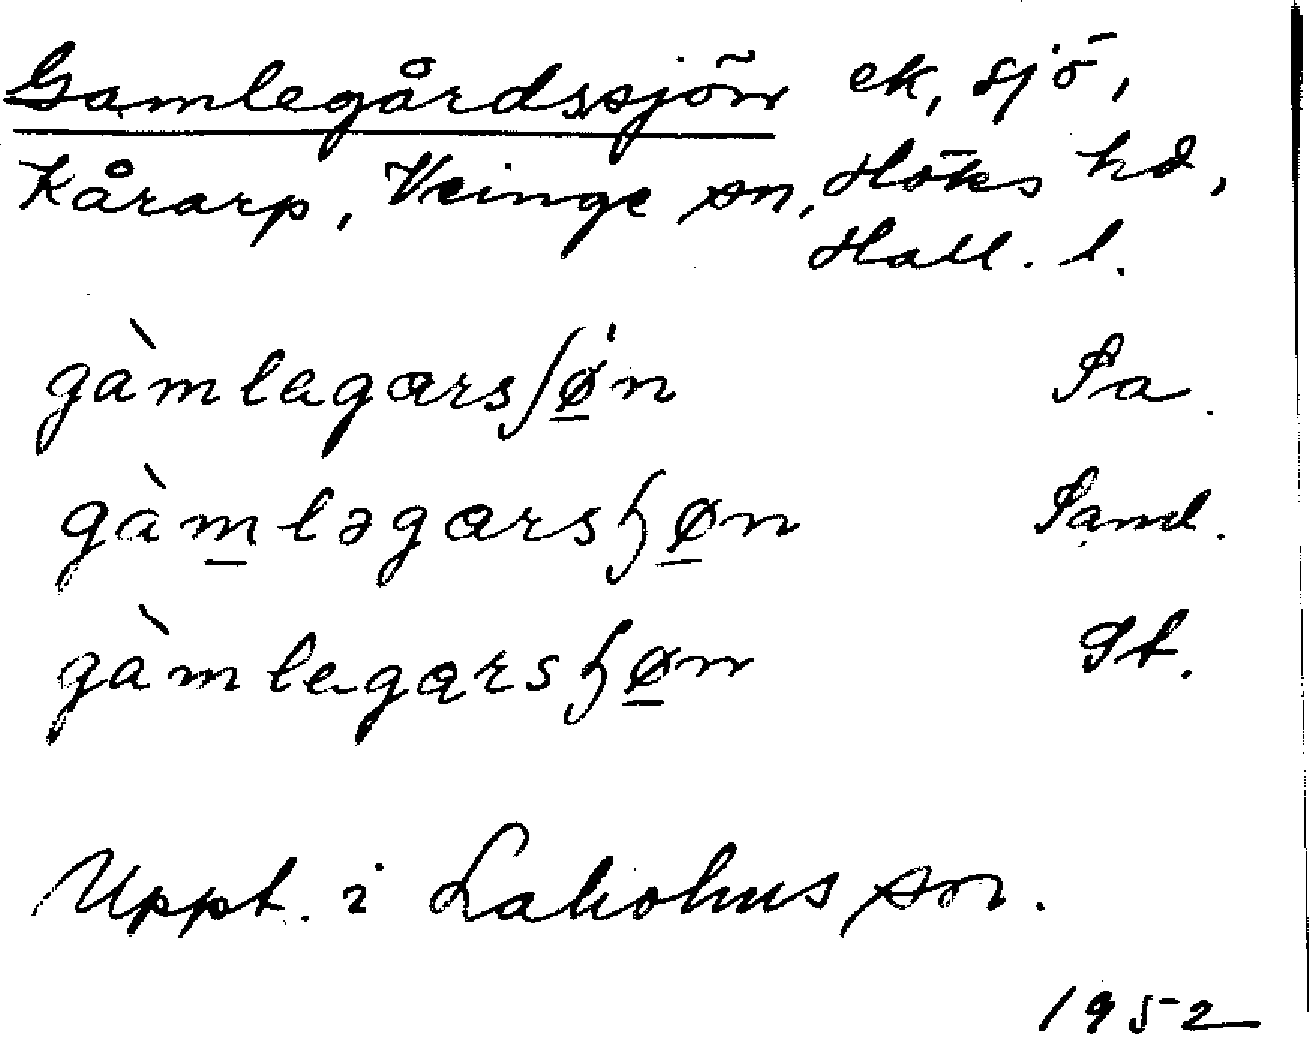 Gamlegårdssjön ek, sjö,
Kårarp, Veinge sn, Höks hd,
Hall. l.
gàmlegarsʃǿ̱n Sa.
gàm̱ləgarsɧø̱n Sand.
gàmlegarsɧø̱n St.
Uppt. i Laholms sn.
1952